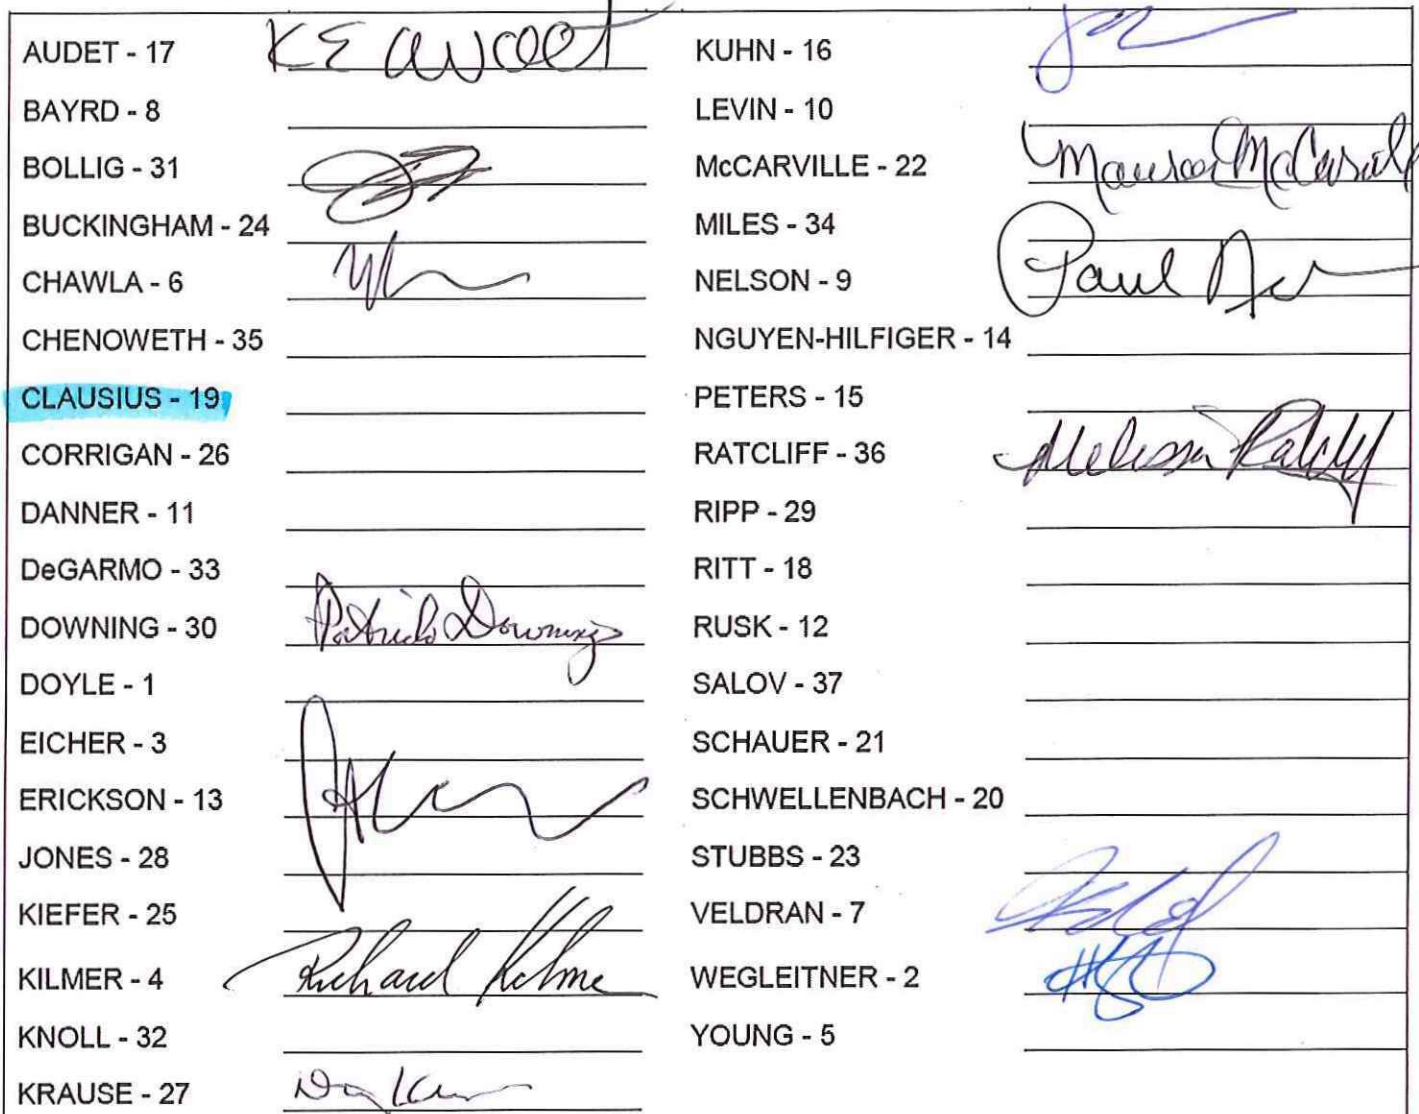 AUDET - 17 KE Audet
BAYRD - 8
BOLLIG - 31
BUCKINGHAM - 24
CHAWLA - 6
CHENOWETH - 35
CLAUSIUS - 19
CORRIGAN - 26
DANNER - 11
DeGARMO - 33
DOWNING - 30 Patrick Downing
DOYLE - 1
EICHER - 3
ERICKSON - 13
JONES - 28
KIEFER - 25
KILMER - 4 Richard Kilmer
KNOLL - 32
KRAUSE - 27
KUHN - 16
LEVIN - 10
McCARVILLE - 22 Maureen McCarville
MILES - 34
NELSON - 9 Paul
NGUYEN-HILFIGER - 14
PETERS - 15
RATCLIFF - 36 Melissa Ratcliff
RIPP - 29
RITT - 18
RUSK - 12
SALOV - 37
SCHAUER - 21
SCHWELLENBACH - 20
STUBBS - 23
VELDRAN - 7
WEGLEITNER - 2
YOUNG - 5